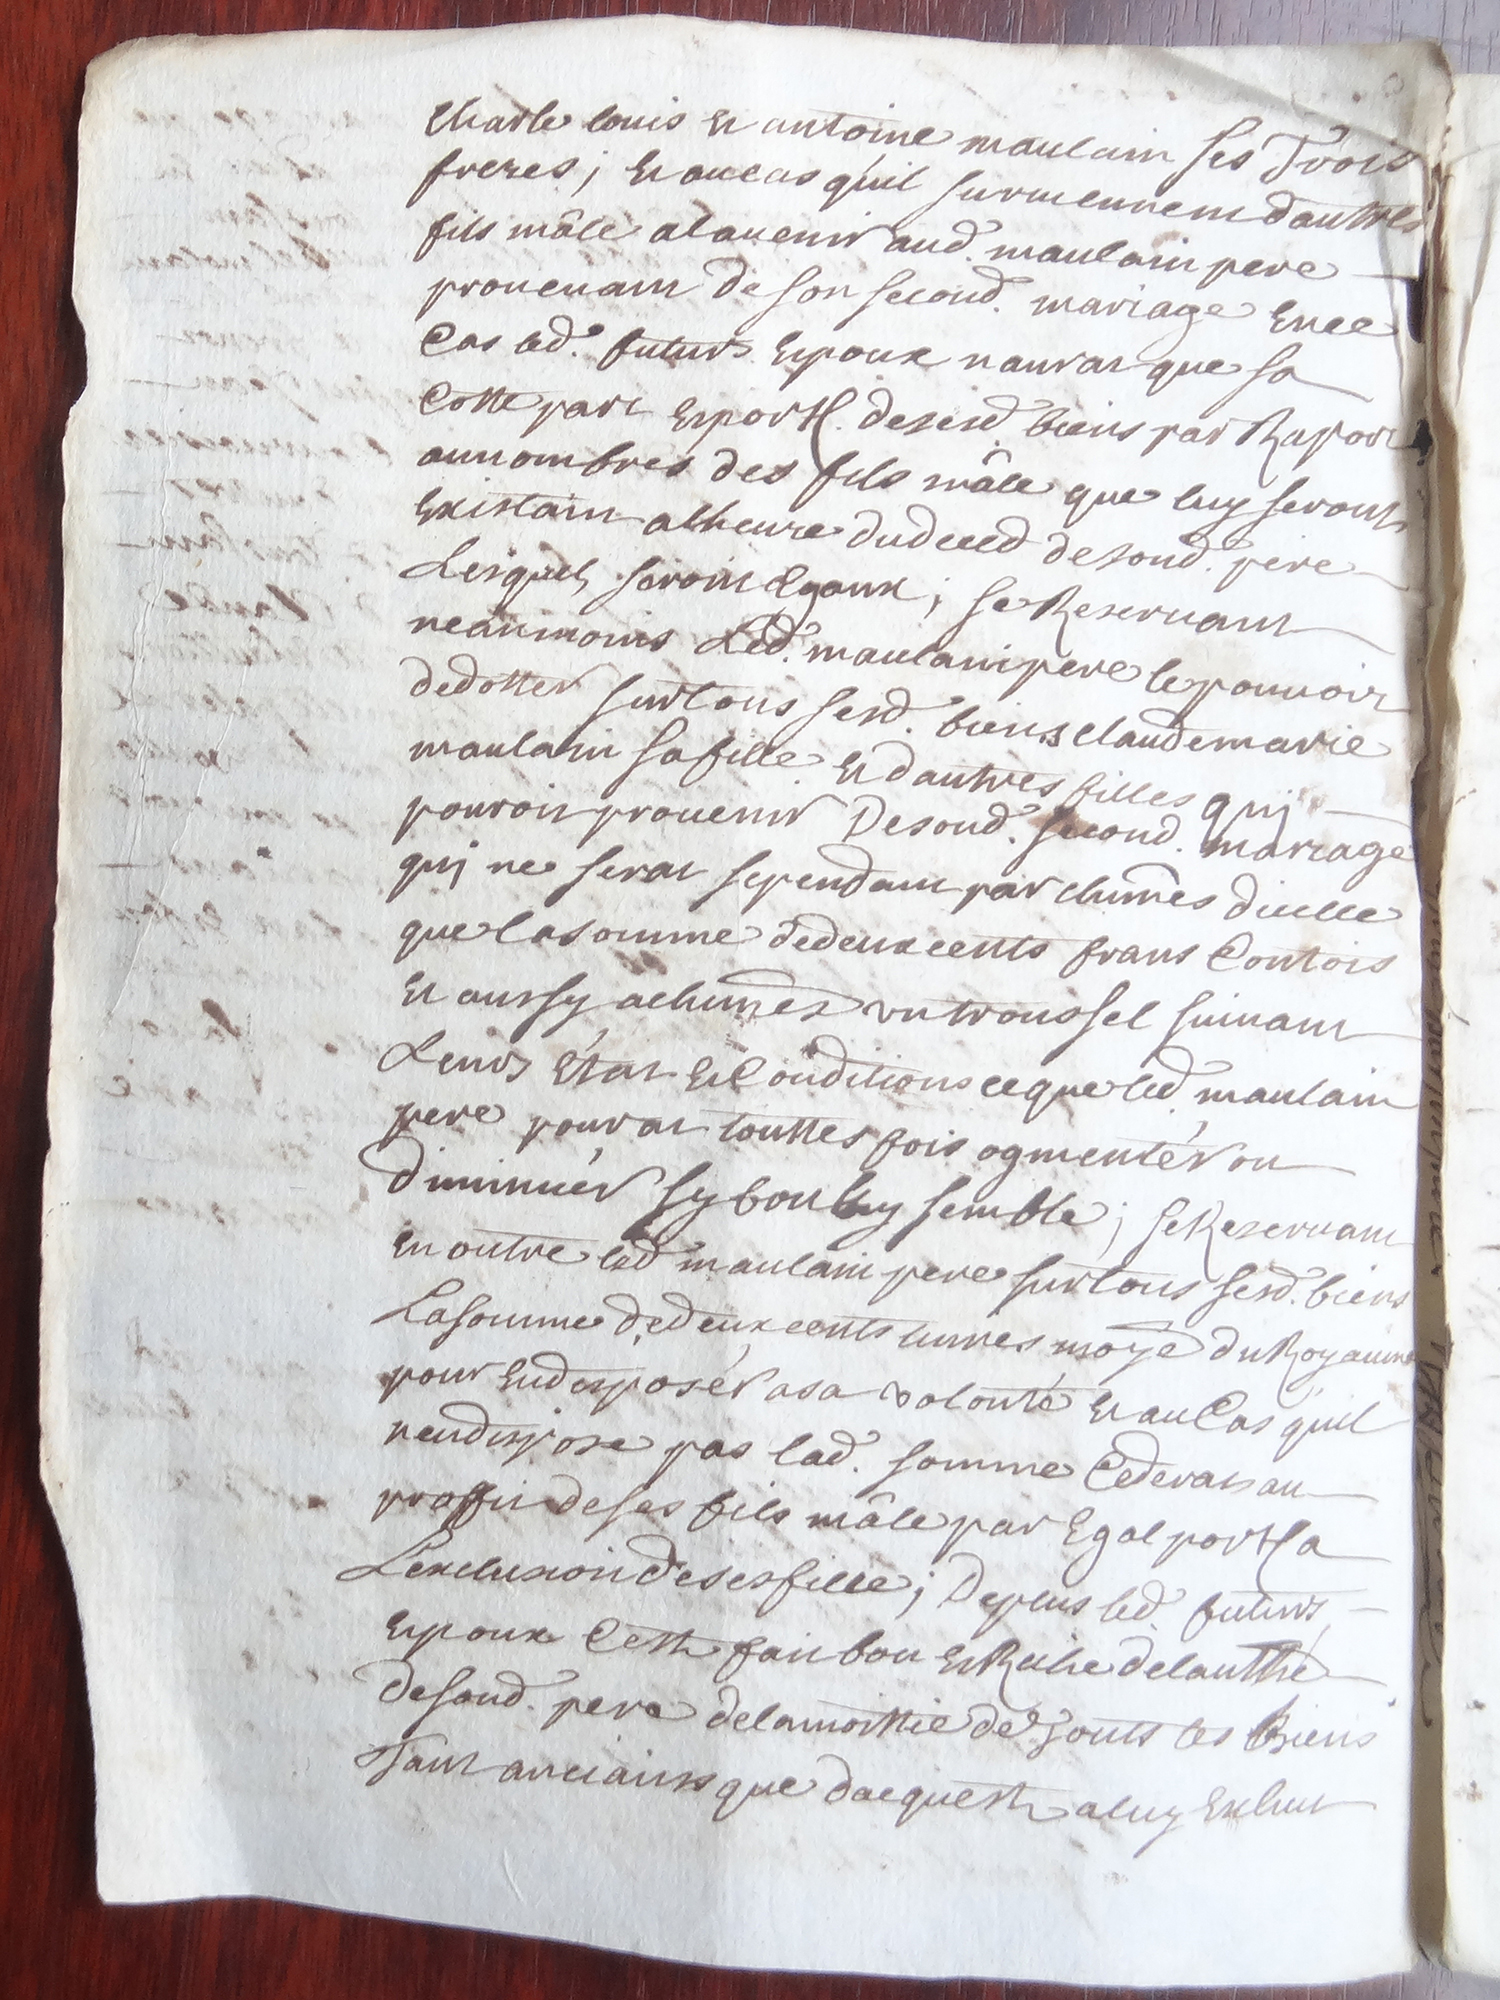 Charle louis et antoine maulain ses Trois
freres; et aucas quil surmeurent dautres
fils mâle alavenir aud. maulain pere
provenant de son second. mariage en ce
Cas led. futurs Epoux naurat que sa
Cotte part et portt. desesd biens par Raport
aunombres des fils mâle que luy seronts
Existant alheure dudeced desond. pere
Lesquels seroint Egaux; se Reservant
neanmoins Led. maulain pere le pouvoir
dedotter surtous sesd. biens claudemarie
maulain safille et dautres filles quj
pouroit provenir Desond. second. mariage
quj ne serat sependant par chunes dicelle
que lasomme dedeuxcents frans Contois
Et aussy achunes un troussel suivant
Leurs État et Conditions ceque led. maulain
pere pourat touttes fois ogmentér ou
Diminuér sy bon luy semble; se Reservant
En outre led maulain pere surtous sesd. biens
Lasomme dedeux cents livres moye du Royaume
pour Endisposér asa volonté et au Cas quil
nendispose pas lad. somme Cederat au
proffit deses fils mâle par Egal portt a
Lexclusion deses fille; Deplus led futurs
Epoux Cest fait bon et Riche delautthé
desond. pere delamoittié de touts les Biens
Tant anciains que dacquest a luy Exhut